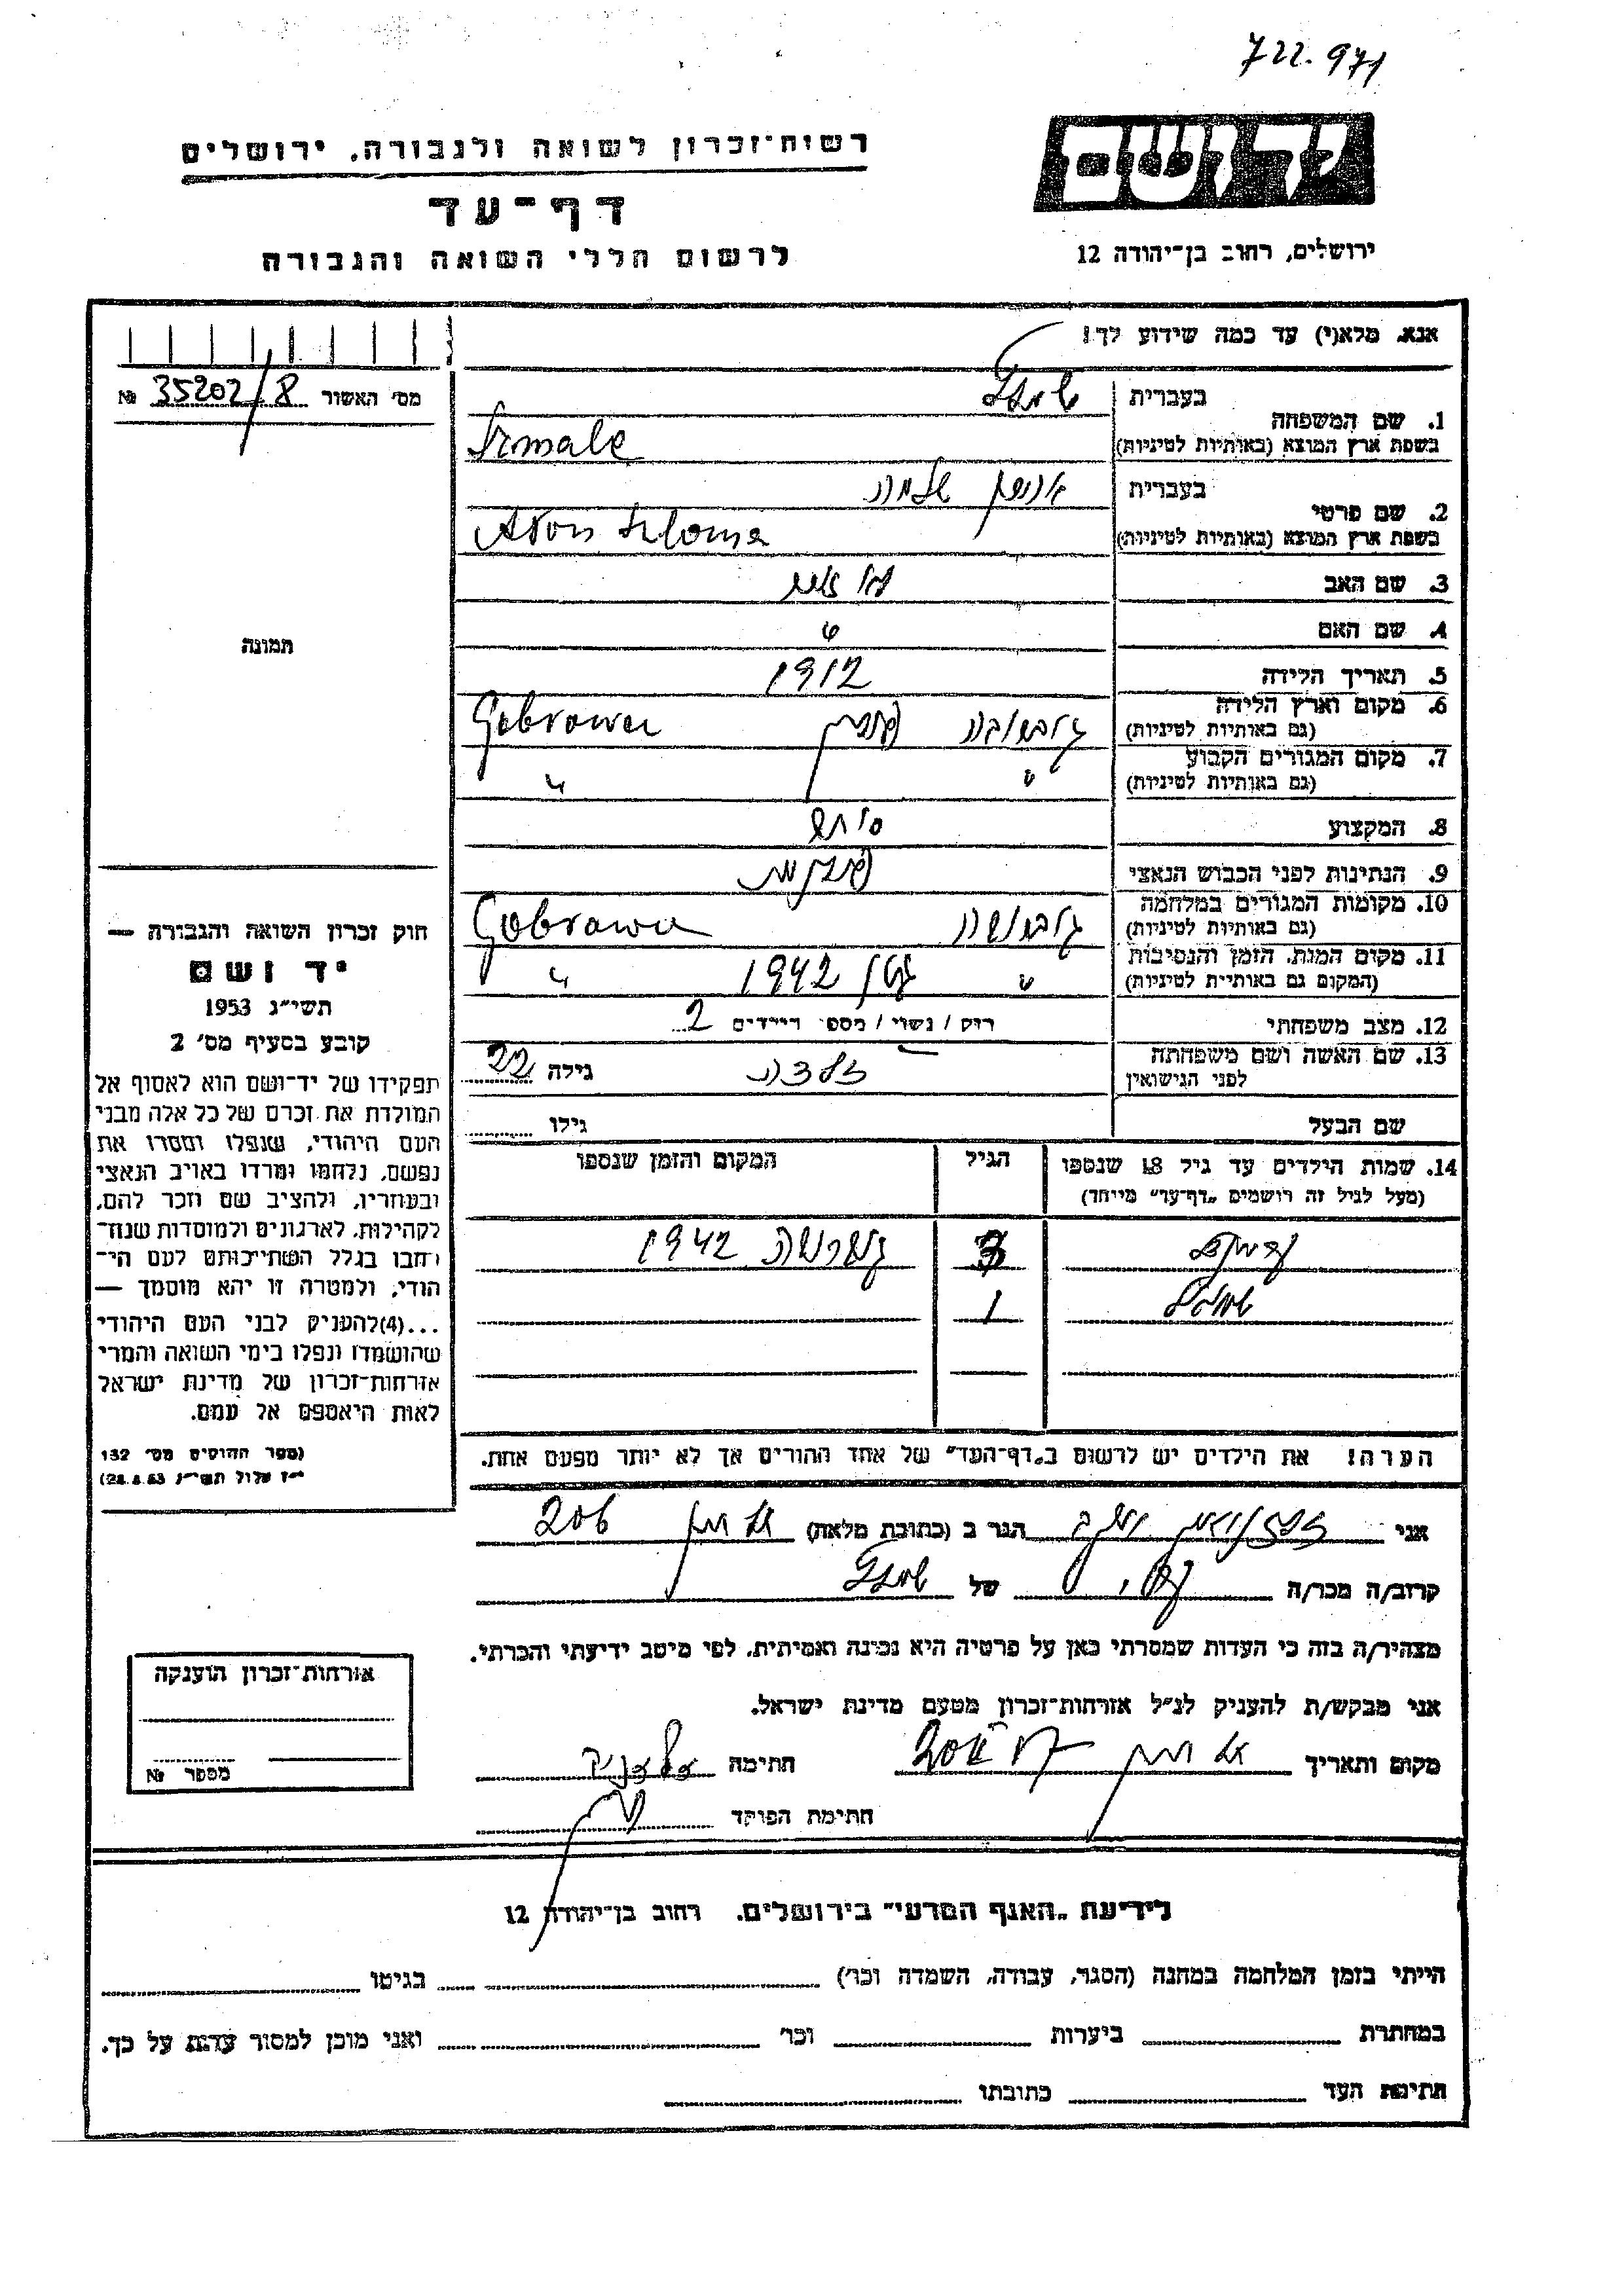 722.971
רשות־זכרון לשואה ולגבורה, ירושלים
דף־עד
לרשום חללי השואה והגבורה
יד ושם
ירושלים, רחוב בן־יהודה 12
אנא, מלא(י) עד כמה שידוע לך!
מס׳ האשור 35202/8 №
תמונה
1. שם המשפחה
בעברית
בשפת ארץ המוצא (באותיות לטיניות) Srmale
2. שם פרטי
בעברית
בשפת ארץ המוצא (באותיות לטיניות) Aron Szloma
3. שם האב
4. שם האם "
5. תאריך הלידה 1912
6. מקום וארץ הלידה
(גם באותיות לטיניות) פולין Gobrowa
7. מקום המגורים הקבוע
(גם באותיות לטיניות) " "
8. המקצוע סוחר
9. הנתינות לפני הכבוש הנאצי פולנית
10. מקומות המגורים במלחמה
(גם באותיות לטיניות) Gobrowa
11. מקום המות, הזמן והנסיבות
(המקום גם באותיות לטיניות) " 1942 "
12. מצב משפחתי רווק / נשוי / מספר הילדים 2
13. שם האשה ושם משפחתה
לפני הנישואין גילה 22
שם הבעל גילו
14. שמות הילדים עד גיל 18 שנספו
(מעל לגיל זה רושמים "דף־עד" מיוחד)
הגיל
המקום והזמן שנספו
3 1942
1
הערה! את הילדים יש לרשום ב"דף־העד" של אחד ההורים אך לא יותר מפעם אחת.
חוק זכרון השואה והגבורה —
יד ושם
תשי״ג 1953
קובע בסעיף מס׳ 2
תפקידו של יד־ושם הוא לאסוף אל
המולדת את זכרם של כל אלה מבני
העם היהודי, שנפלו ומסרו את
נפשם, נלחמו ומרדו באויב הנאצי
ובעוזריו, ולהציב שם וזכר להם,
לקהילות, לארגונים ולמוסדות שנח־
רבו בגלל השתייכותם לעם הי־
הודי, ולמטרה זו יהא מוסמך —
...(4)להעניק לבני העם היהודי
שהושמדו ונפלו בימי השואה והמרי
אזרחות־זכרון של מדינת ישראל
לאות היאספם אל עמם.
(ספר החוקים מס׳ 132
י״ז אלול תשי״ג 28.8.53)
אני הגר ב (כתובת מלאה)
קרוב/ה מכר/ה של
מצהיר/ה בזה כי העדות שמסרתי כאן על פרטיה היא נכונה ואמיתית, לפי מיטב ידיעתי והכרתי.
אני מבקש/ת להעניק לנ״ל אזרחות־זכרון מטעם מדינת ישראל.
מקום ותאריך חתימה
חתימת הפוקד
אזרחות־זכרון הוענקה
מספר №
לידיעת "האגף המדעי" בירושלים, רחוב בן־יהודה 12
הייתי בזמן המלחמה במחנה (הסגר, עבודה, השמדה וכו׳) בגיטו
במחתרת ביערות וכו׳ ואני מוכן למסור עדות על כך.
חתימת העד כתובתו